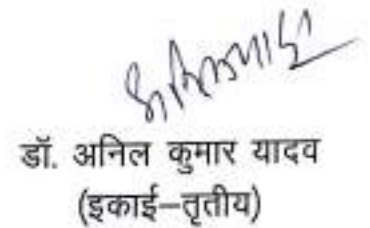 डॉ. अनिल कुमार यादव
(इकाई–तृतीय)